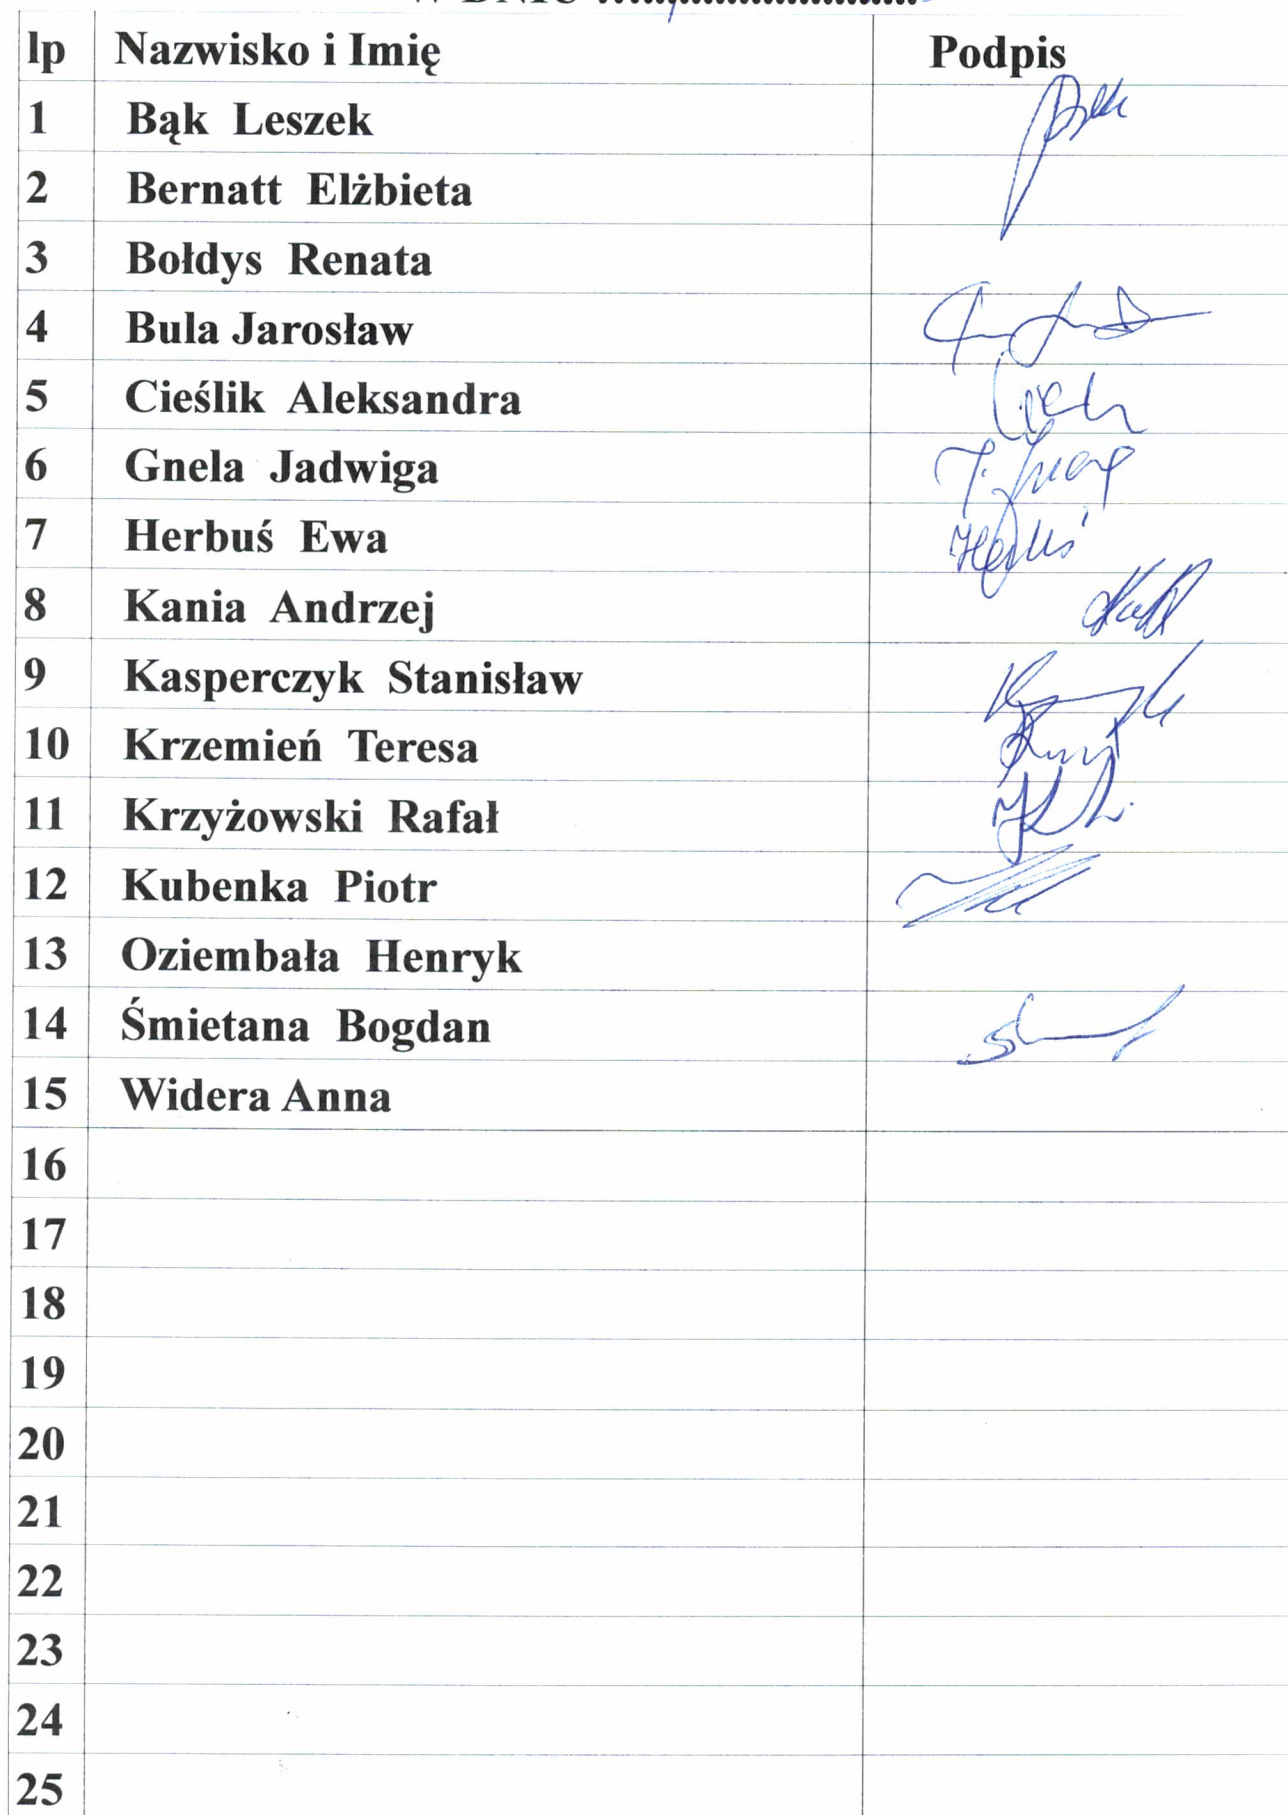 W DNIU ................................
lp Nazwisko i Imię Podpis
1 Bąk Leszek
2 Bernatt Elżbieta
3 Bołdys Renata
4 Bula Jarosław
5 Cieślik Aleksandra
6 Gnela Jadwiga
7 Herbuś Ewa Herbuś
8 Kania Andrzej
9 Kasperczyk Stanisław
10 Krzemień Teresa
11 Krzyżowski Rafał
12 Kubenka Piotr
13 Oziembała Henryk
14 Śmietana Bogdan
15 Widera Anna
16
17
18
19
20
21
22
23
24
25